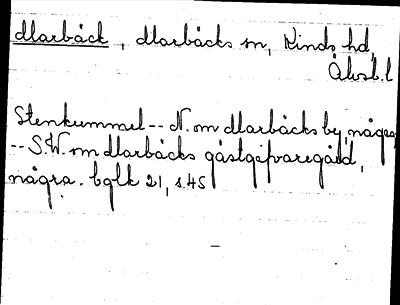 Marbäck, Marbäcks sn, Kinds hd,
Älvsb. l
Stenkummel -- N. om Marbäcks by, några
-- S.W. om Marbäcks gästgifvaregård,
några. bglk 21, s.45